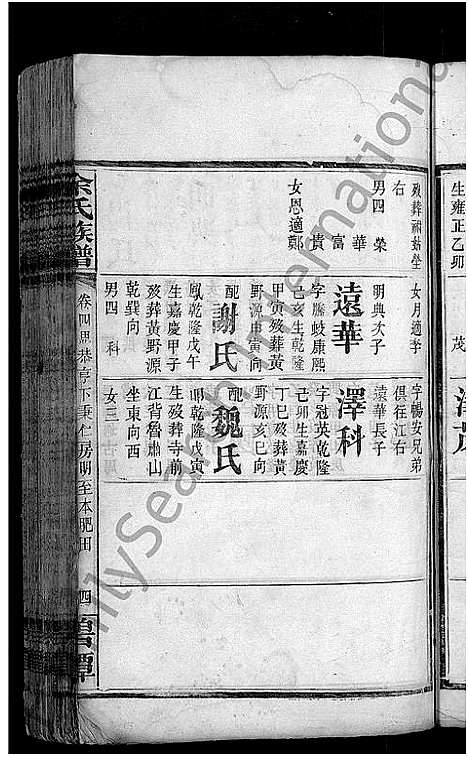 生雍正乙卯
茂
歿葬祖姑塋
右
男四 榮
華
富
貴
女恩適鄭
女月適李
明典次子
遠華
字騰蛟康熙
己亥生乾隆
甲寅歿葬黄
野源申寅向
配
謝氏
鳳乾隆戊午
生嘉慶甲子
歿葬黄野源
乾巽向
男四 科
字暢安兄弟
俱徃江右
遠華長子
澤科
字冠英乾隆
己卯生嘉慶
丁巳歿葬黄
野源亥巳向
配
魏氏
乾隆戊寅
生歿葬寺前
江背魯肅山
坐東向西
女三
余氏族譜
卷四甲恭亭下秉仁房明至本肥田
四
FamilySearch International